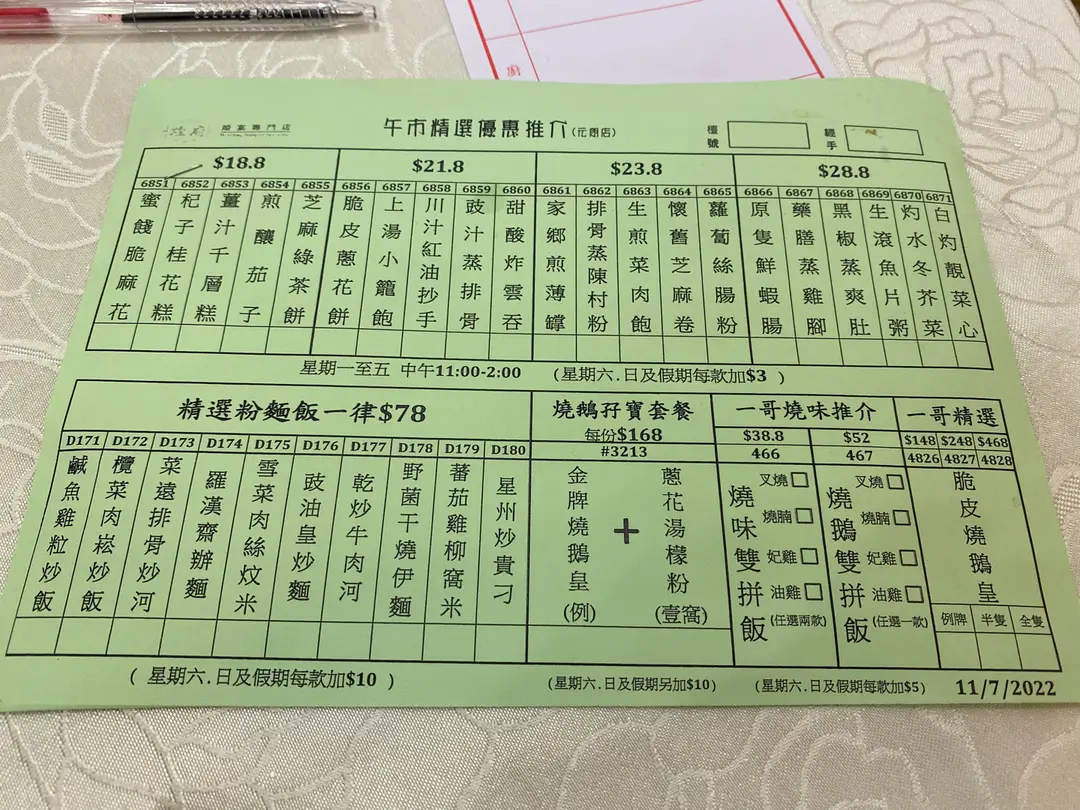 煌府 婚宴專門店
午市精選優惠推介(元朗店)
檯號
經手
$18.8 $21.8 $23.8 $28.8
6851 6852 6853 6854 6855 6856 6857 6858 6859 6860 6861 6862 6863 6864 6865 6866 6867 6868 6869 6870 6871
蜜餞脆麻花
杞子桂花糕
薑汁千層糕
煎釀茄子
芝麻綠茶餅
脆皮蔥花餅
上湯小籠飽
川汁紅油抄手
豉汁蒸排骨
甜酸炸雲吞
家鄉煎薄罉
排骨蒸陳村粉
生煎菜肉飽
懷舊芝麻卷
蘿蔔絲腸粉
原隻鮮蝦腸
藥膳蒸雞腳
黑椒蒸爽肚
生滾魚片粥
灼水冬芥菜
白灼靚菜心
星期一至五 中午11:00-2:00 (星期六.日及假期每款加$3 )
精選粉麵飯一律$78
D171 D172 D173 D174 D175 D176 D177 D178 D179 D180
鹹魚雞粒炒飯
欖菜肉崧炒飯
菜遠排骨炒河
羅漢齋辦麵
雪菜肉絲炆米
豉油皇炒麵
乾炒牛肉河
野菌干燒伊麵
蕃茄雞柳窩米
星州炒貴刁
( 星期六.日及假期每款加$10 )
燒鵝孖寶套餐
每份$168
#3213
金牌燒鵝皇(例)
+
蔥花湯檬粉(壹窩)
(星期六.日及假期另加$10)
一哥燒味推介
$38.8 $52
466 467
燒味雙拼飯
叉燒
燒腩
妃雞
油雞
(任選兩款)
燒鵝雙拼飯
叉燒
燒腩
妃雞
油雞
(任選一款)
(星期六.日及假期每款加$5)
一哥精選
$148 $248 $468
4826 4827 4828
脆皮燒鵝皇
例牌 半隻 全隻
11/7/2022